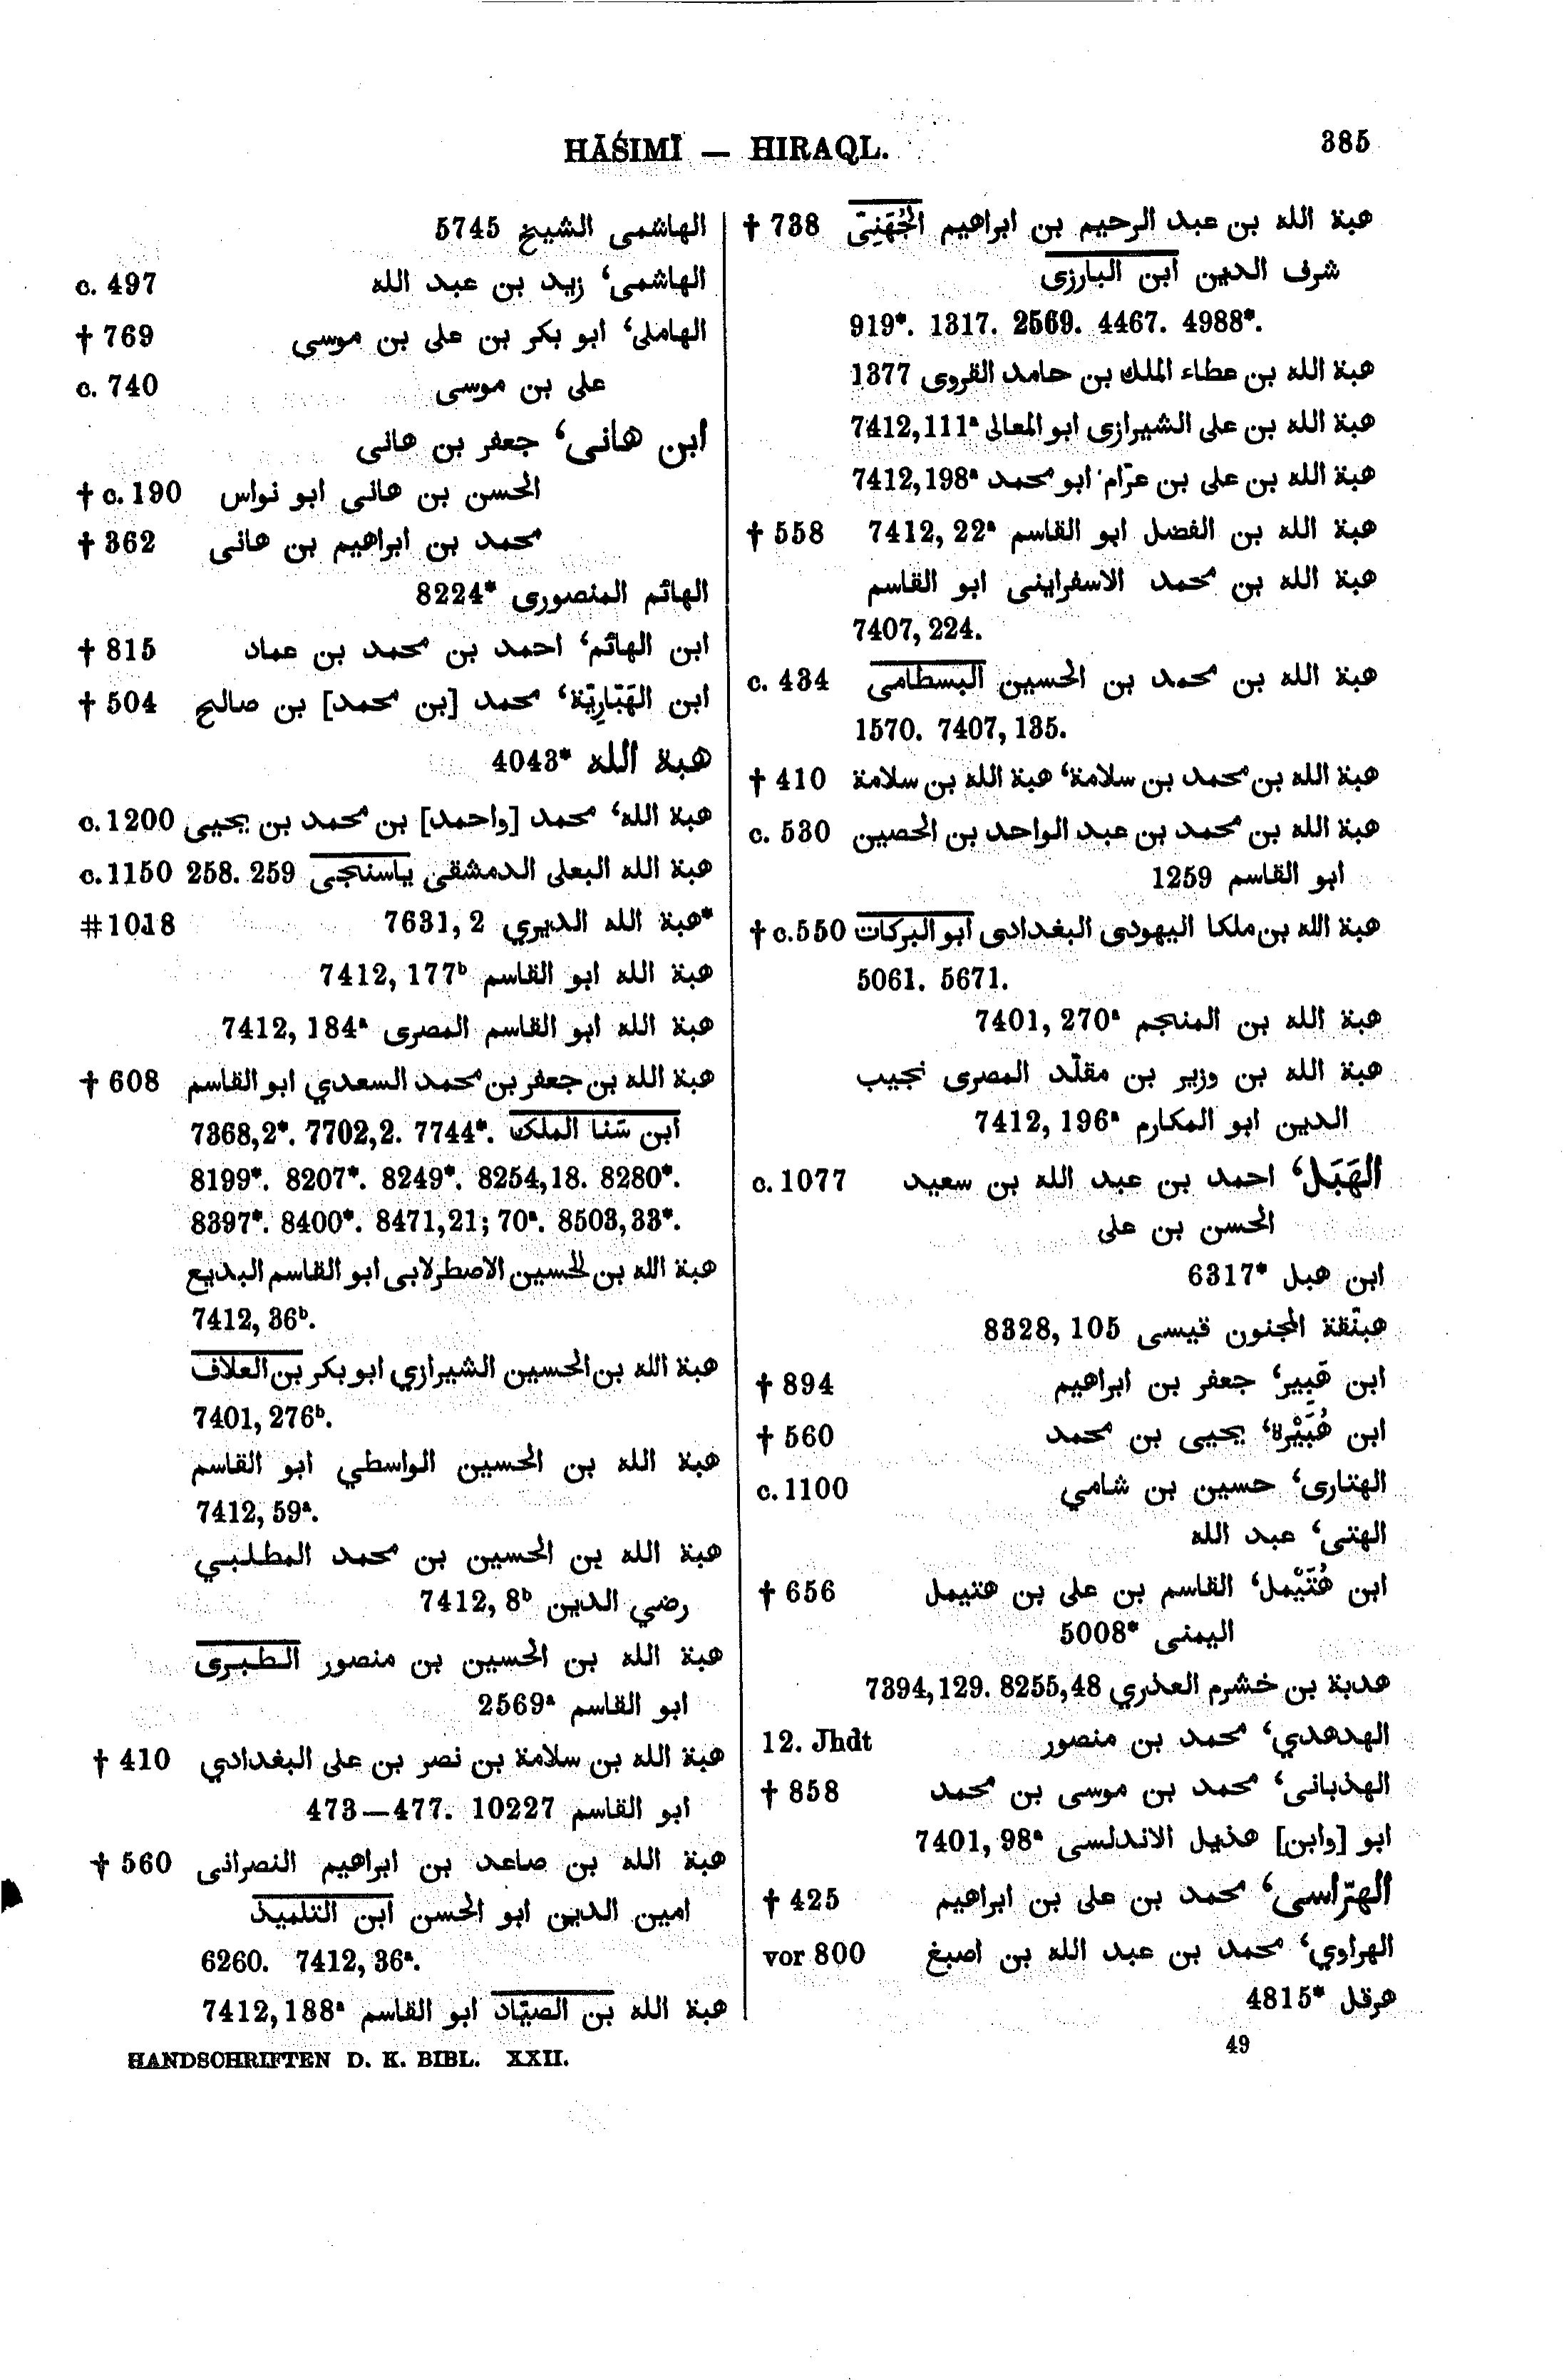 HĀŚIMĪ — HIRAQL.
385
الهاشمى الشيخ 5745
الهاشمى، زيد بن عبد الله c. 497
الهاملى، ابو بكر بن على بن موسى † 769
على بن موسى c. 740
ابن هانى، جعفر بن هانى
الحسن بن هانى ابو نواس † c. 190
محمد بن ابراهيم بن هانى † 362
الهائم المنصورى 8224*
ابن الهائم، احمد بن محمد بن عماد † 815
ابن الهَبَّارِيَّة، محمد [بن محمد] بن صالح † 504
هبة الله 4043*
هبة الله، محمد [واحمد] بن محمد بن يحيى c. 1200
هبة الله البعلى الدمشقى ياسنجى 258. 259 c. 1150
*هبة الله الديري 7631, 2 #1018
هبة الله ابو القاسم 7412, 177ᵇ
هبة الله ابو القاسم المصرى 7412, 184ᵃ
هبة الله بن جعفر بن محمد السعدي ابو القاسم † 608
ابن سَنا الملك 7368,2*. 7702,2. 7744*.
8199*. 8207*. 8249*. 8254,18. 8280*.
8397*. 8400*. 8471,21; 70ᵃ. 8503,33*.
هبة الله بن الحسين الاصطرلابى ابو القاسم البديع
7412, 36ᵇ.
هبة الله بن الحسين الشيرازي ابو بكر بن العلاف
7401, 276ᵇ.
هبة الله بن الحسين الواسطي ابو القاسم
7412, 59ᵃ.
هبة الله بن الحسين بن محمد المطلبي
رضي الدين 7412, 8ᵇ
هبة الله بن الحسين بن منصور الطبرى
ابو القاسم 2569ᵃ
هبة الله بن سلامة بن نصر بن على البغدادي † 410
ابو القاسم 473—477. 10227
هبة الله بن صاعد بن ابراهيم النصرانى † 560
امين الدين ابو الحسن ابن التلميذ
6260. 7412, 36ᵃ.
هبة الله بن الصيّاد ابو القاسم 7412, 188ᵃ
هبة الله بن عبد الرحيم بن ابراهيم الجُهَنِىّ † 738
شرف الدين ابن البارزى
919*. 1317. 2569. 4467. 4988*.
هبة الله بن عطاء الملك بن حامد القروى 1377
هبة الله بن على الشيرازى ابو المعالى 7412,111ᵃ
هبة الله بن على بن عرّام ابو محمد 7412,198ᵃ
هبة الله بن الفضل ابو القاسم 7412, 22ᵃ † 558
هبة الله بن محمد الاسفراينى ابو القاسم
7407, 224.
هبة الله بن محمد بن الحسين البسطامى c. 434
1570. 7407, 135.
هبة الله بن محمد بن سلامة، هبة الله بن سلامة † 410
هبة الله بن محمد بن عبد الواحد بن الحصين c. 530
ابو القاسم 1259
هبة الله بن ملكا اليهودى البغدادى ابو البركات † c. 550
5061. 5671.
هبة الله بن المنجم 7401, 270ᵃ
هبة الله بن وزير بن مقلّد المصرى نجيب
الدين ابو المكارم 7412, 196ᵃ
الهَبَل، احمد بن عبد الله بن سعيد c. 1077
الحسن بن على
ابن هبل 6317*
هبنّقة المجنون قيسى 8328, 105
ابن هَبِير، جعفر بن ابراهيم † 894
ابن هُبَيْرة، يحيى بن محمد † 560
الهتارى، حسين بن شامي c. 1100
الهتى، عبد الله
ابن هُتَيْمل، القاسم بن على بن هتيمل † 656
اليمنى 5008*
هدبة بن خشرم العذري 7394,129. 8255,48
الهدهدي، محمد بن منصور 12. Jhdt
الهذبانى، محمد بن موسى بن محمد † 858
ابو [وابن] هذيل الاندلسى 7401, 98ᵃ
الهرّاسى، محمد بن على بن ابراهيم † 425
الهراوي، محمد بن عبد الله بن اصبغ vor 800
هرقل 4815*
HANDSCHRIFTEN D. K. BIBL. XXII.
49